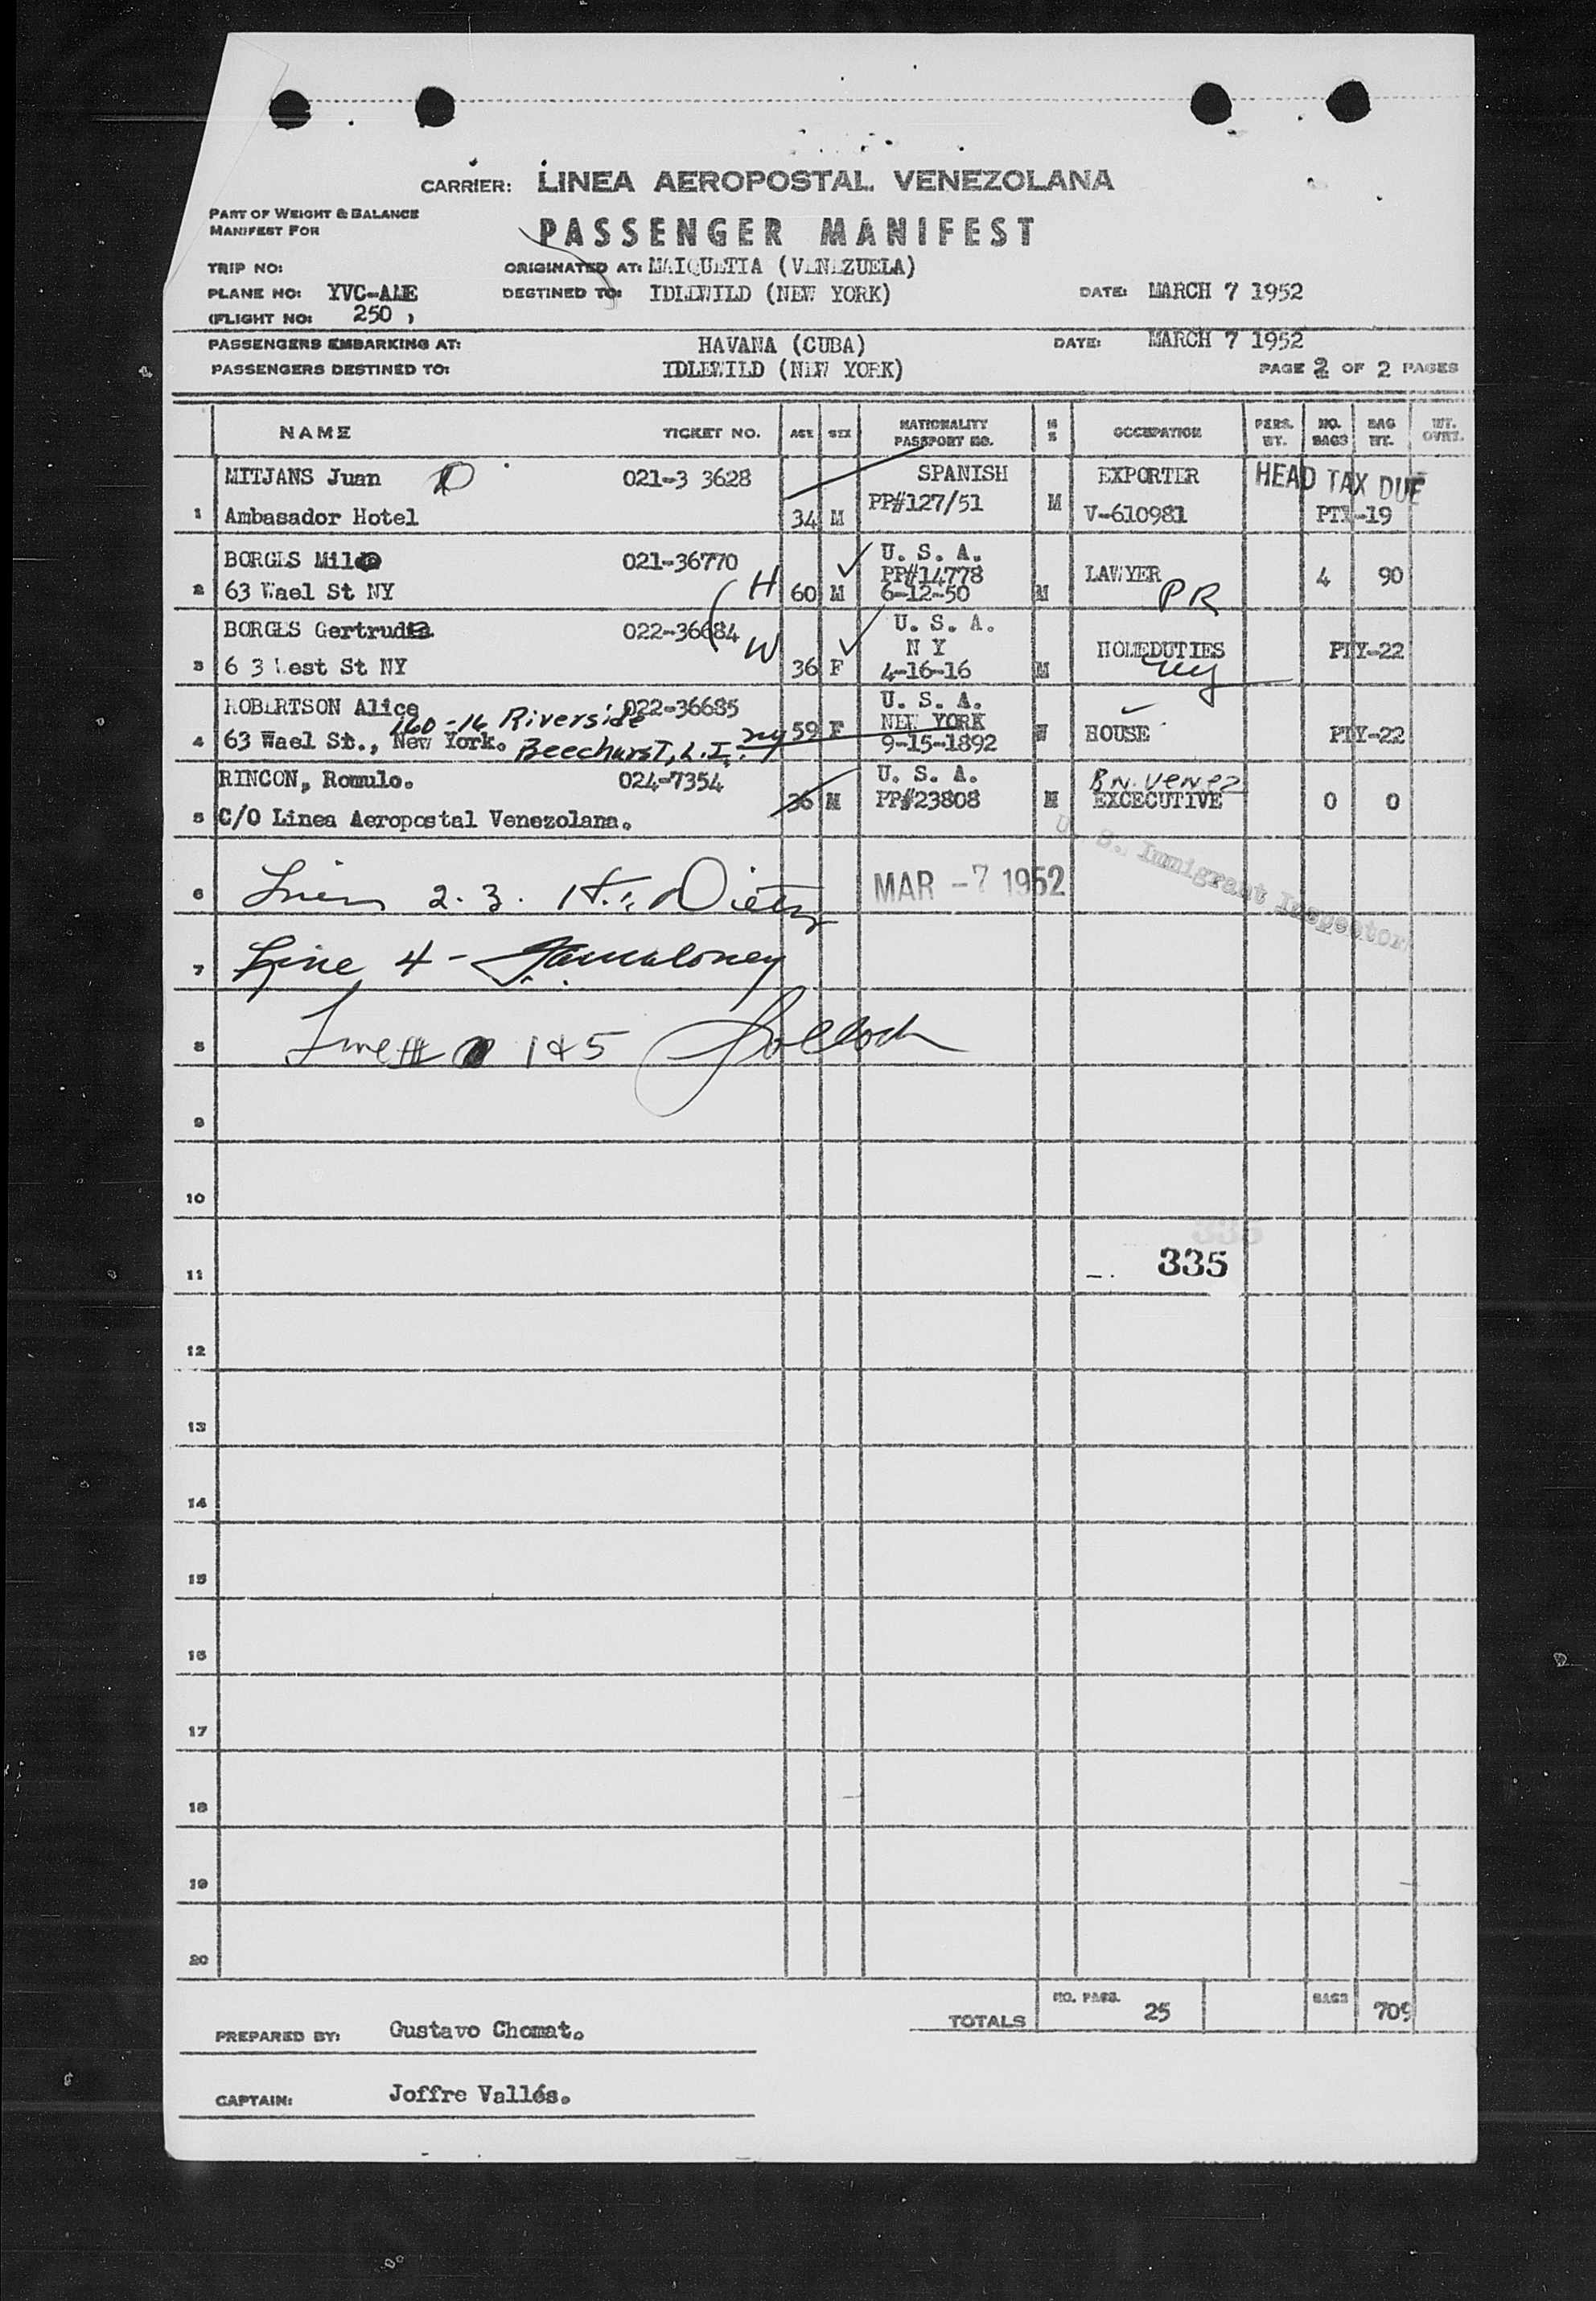 CARRIER: LINEA AEROPOSTAL VENEZOLANA
PART OF WEIGHT & BALANCE
MANIFEST FOR
PASSENGER MANIFEST
TRIP NO:
ORIGINATED AT: MAIQUETIA (VENEZUELA)
PLANE NO: YVC-AME
DESTINED TO: IDLEWILD (NEW YORK)
DATE: MARCH 7 1952
(FLIGHT NO: 250 )
PASSENGERS EMBARKING AT: HAVANA (CUBA) DATE: MARCH 7 1952
PASSENGERS DESTINED TO: IDLEWILD (NEW YORK) PAGE 2 OF 2 PAGES
NAME TICKET NO. AGE SEX NATIONALITY PASSPORT NO. M S OCCUPATION PERS. WT. NO. BAGS BAG WT. WT. OVRT.
MITJANS Juan 021-3 3628 SPANISH EXPORTER HEAD TAX DUE
1 Ambasador Hotel 34 M PP#127/51 M V-610981 PTY-19
BORGES Mild 021-36770 U. S. A.
PP#14778 LAWYER 4 90
2 63 Wael St NY H 60 M 6-12-50 M PR
BORGES Gertrudis 022-36684 U. S. A.
W N Y HOMEDUTIES PTY-22
3 6 3 West St NY 36 F 4-16-16 M NY
ROBERTSON Alice 022-36685 U. S. A.
160-16 Riverside
4 63 Wael St., New York. Beechurst, L.I. NY 59 F NEW YORK W HOUSE PTY-22
9-15-1892
RINCON, Romulo. 024-7354 U. S. A. BN. VENEZ
36 M PP#23808 M EXCECUTIVE 0 0
5 C/O Linea Aeropostal Venezolana.
U. S. Immigrant Inspector
6 Lines 2. 3. H. Dietz MAR -7 1952
7 Line 4 -
8 Line # 1 & 5
9
10
335
11 335
12
13
14
15
16
17
18
19
20
TOTALS NO. PASS. 25 BAGS 709
PREPARED BY: Gustavo Chomat.
CAPTAIN: Joffre Vallés.